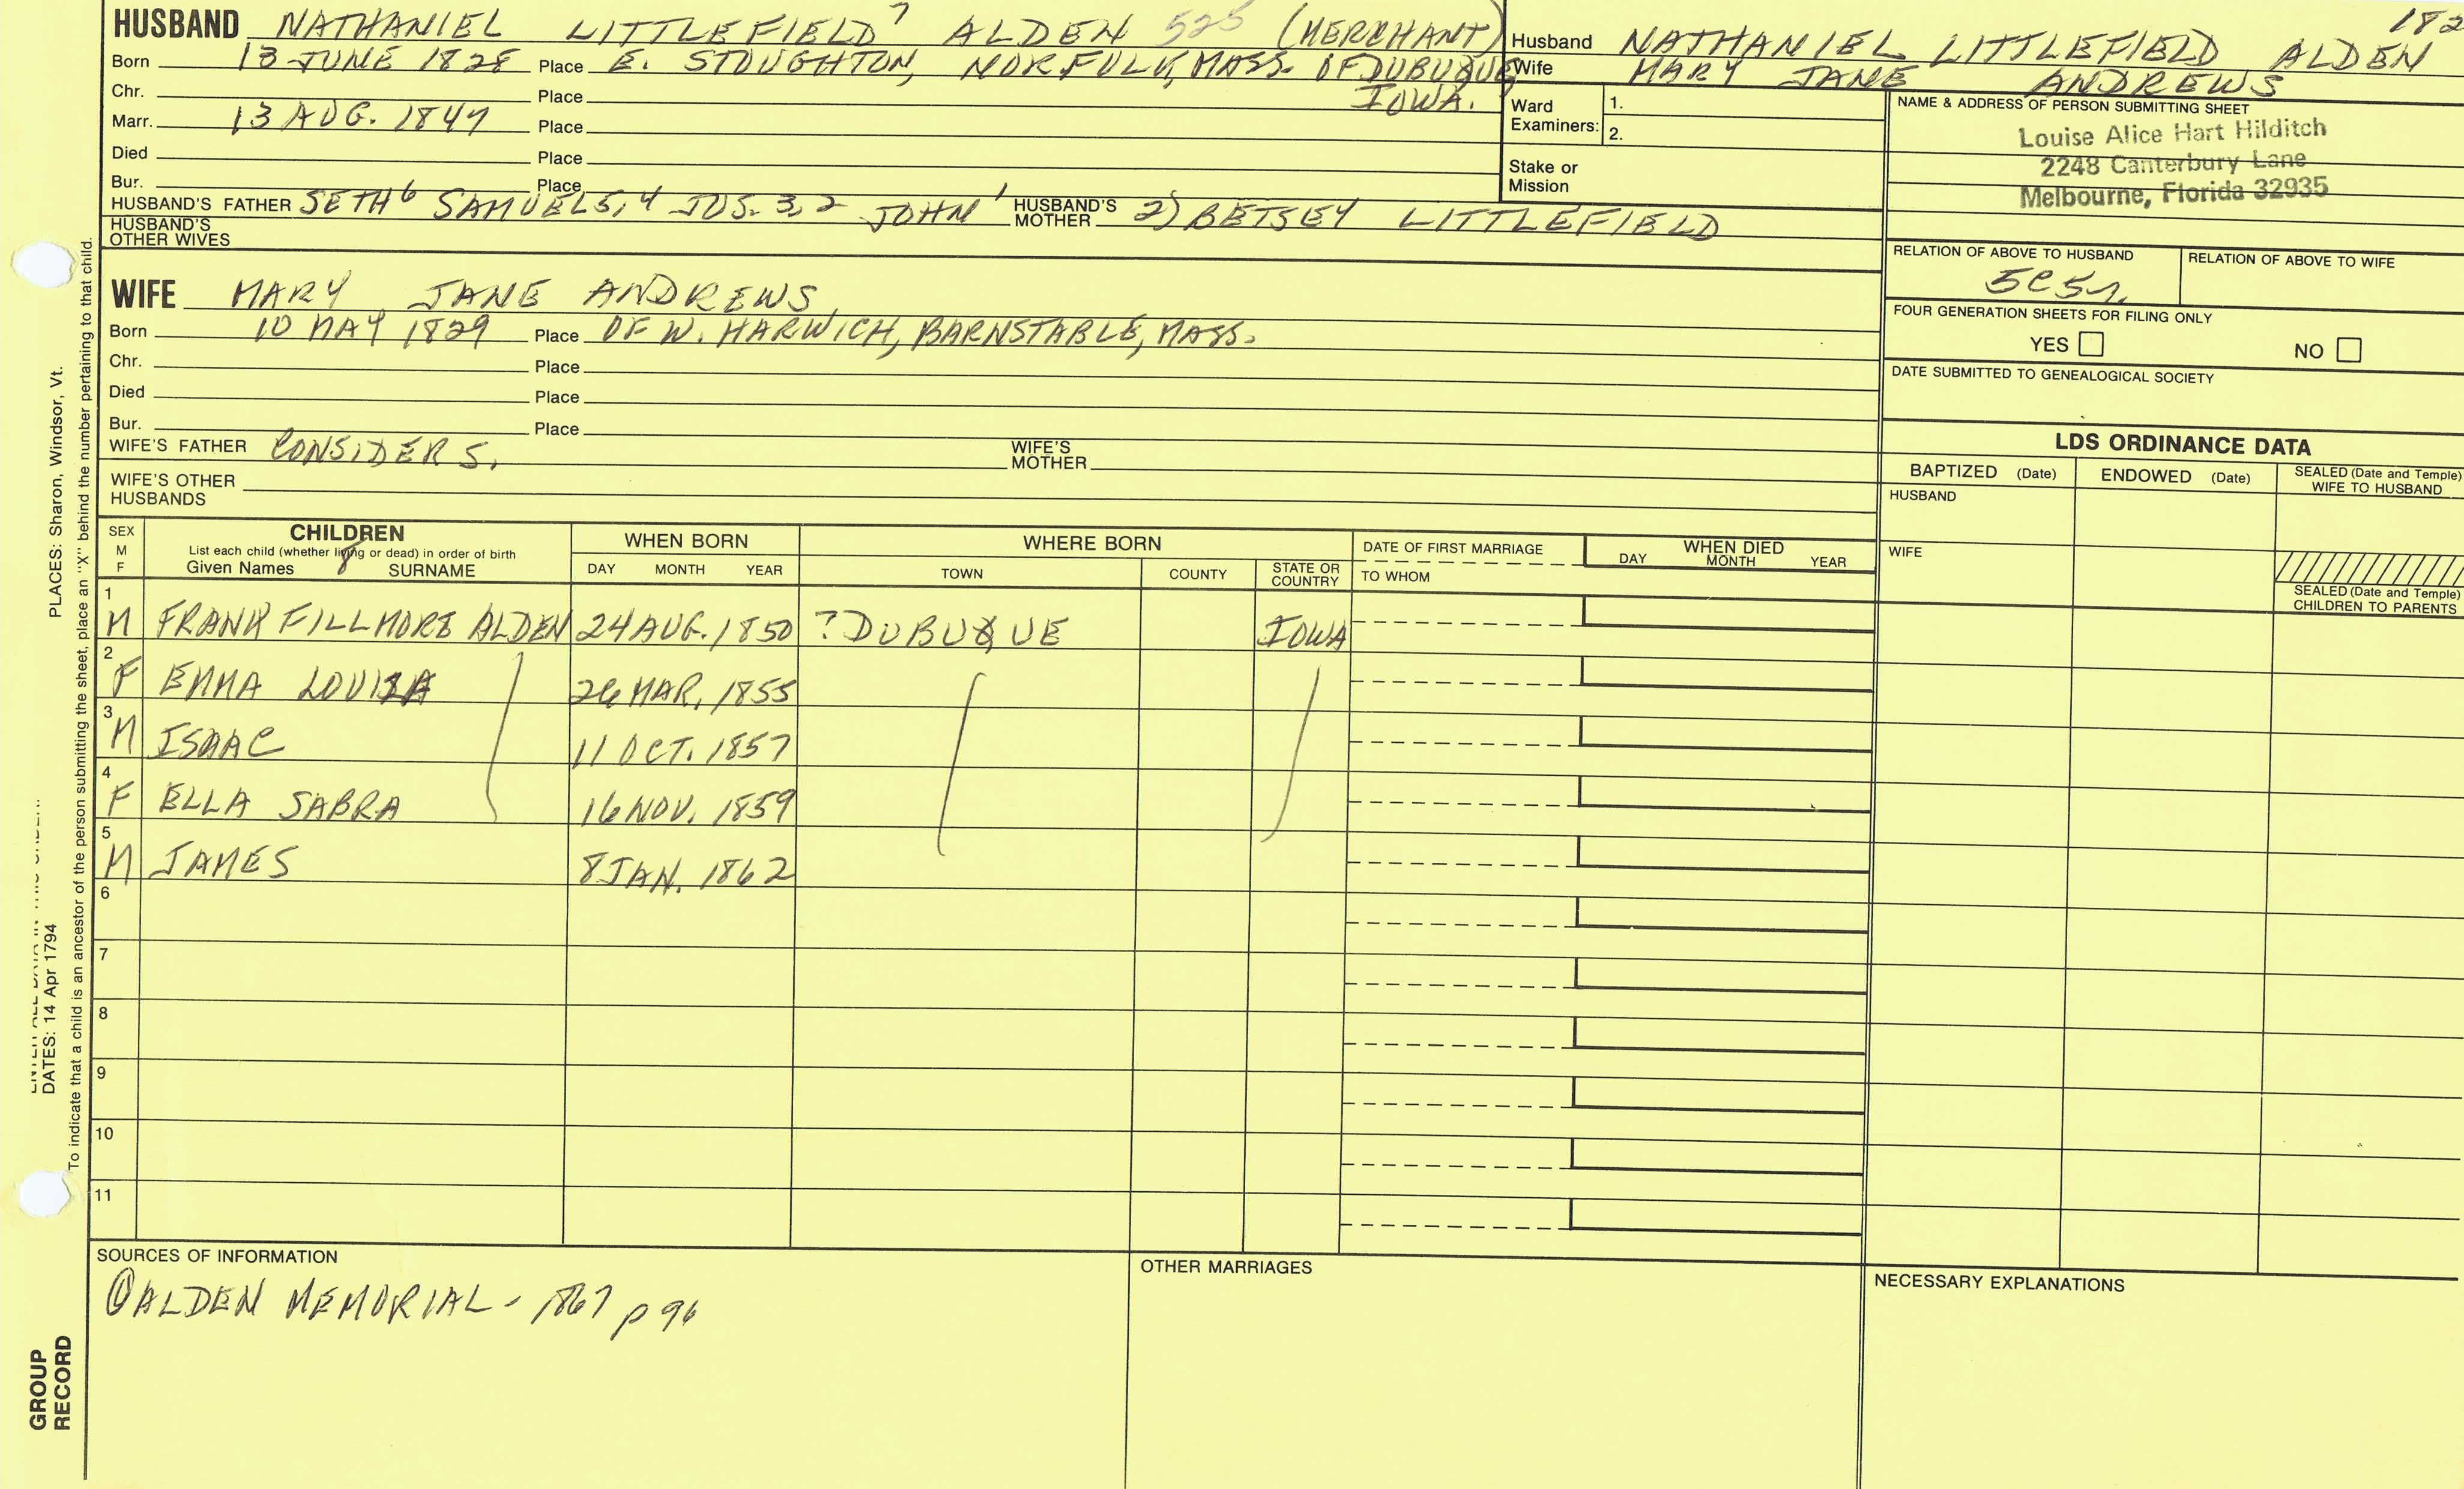 HUSBAND NATHANIEL LITTLEFIELD 7 ALDEN 525 (MERCHANT)
Born 13 JUNE 1828 Place E. STOUGHTON, NORFOLK, MASS. OF DUBUQUE
IOWA.
Chr. Place
Marr. 13 AUG. 1847 Place
Died Place
Bur. Place
HUSBAND'S FATHER SETH 6 SAMUEL 5, 4 JOS. 3, 2 JOHN 1 HUSBAND'S MOTHER 2) BETSEY LITTLEFIELD
HUSBAND'S OTHER WIVES
WIFE MARY JANE ANDREWS
Born 10 MAY 1829 Place OF W. HARWICH, BARNSTABLE, MASS.
Chr. Place
Died Place
Bur. Place
WIFE'S FATHER CONSIDER S. WIFE'S MOTHER
WIFE'S OTHER HUSBANDS
182
Husband NATHANIEL LITTLEFIELD ALDEN
Wife MARY JANE ANDREWS
Ward Examiners: 1.
2.
Stake or Mission
NAME & ADDRESS OF PERSON SUBMITTING SHEET
Louise Alice Hart Hilditch
2248 Canterbury Lane
Melbourne, Florida 32935
RELATION OF ABOVE TO HUSBAND RELATION OF ABOVE TO WIFE
5C5r.
FOUR GENERATION SHEETS FOR FILING ONLY
YES NO
DATE SUBMITTED TO GENEALOGICAL SOCIETY
LDS ORDINANCE DATA
BAPTIZED (Date) ENDOWED (Date) SEALED (Date and Temple) WIFE TO HUSBAND
HUSBAND
WIFE
SEALED (Date and Temple) CHILDREN TO PARENTS
SEX M F
CHILDREN
List each child (whether living or dead) in order of birth
Given Names 8 SURNAME
WHEN BORN
DAY MONTH YEAR
WHERE BORN
TOWN COUNTY STATE OR COUNTRY
DATE OF FIRST MARRIAGE
TO WHOM
WHEN DIED
DAY MONTH YEAR
1 M FRANK FILLMORE ALDEN 24 AUG. 1850 ? DUBUQUE IOWA
2 F EMMA LOUISA 26 MAR. 1855
3 M ISAAC 11 OCT. 1857
4 F ELLA SABRA 16 NOV. 1859
5 M JAMES 8 JAN. 1862
6
7
8
9
10
11
SOURCES OF INFORMATION
① ALDEN MEMORIAL - 1867 p 96
OTHER MARRIAGES
NECESSARY EXPLANATIONS
PLACES: Sharon, Windsor, Vt.
DATES: 14 Apr 1794
To indicate that a child is an ancestor of the person submitting the sheet, place an "X" behind the number pertaining to that child.
GROUP
RECORD